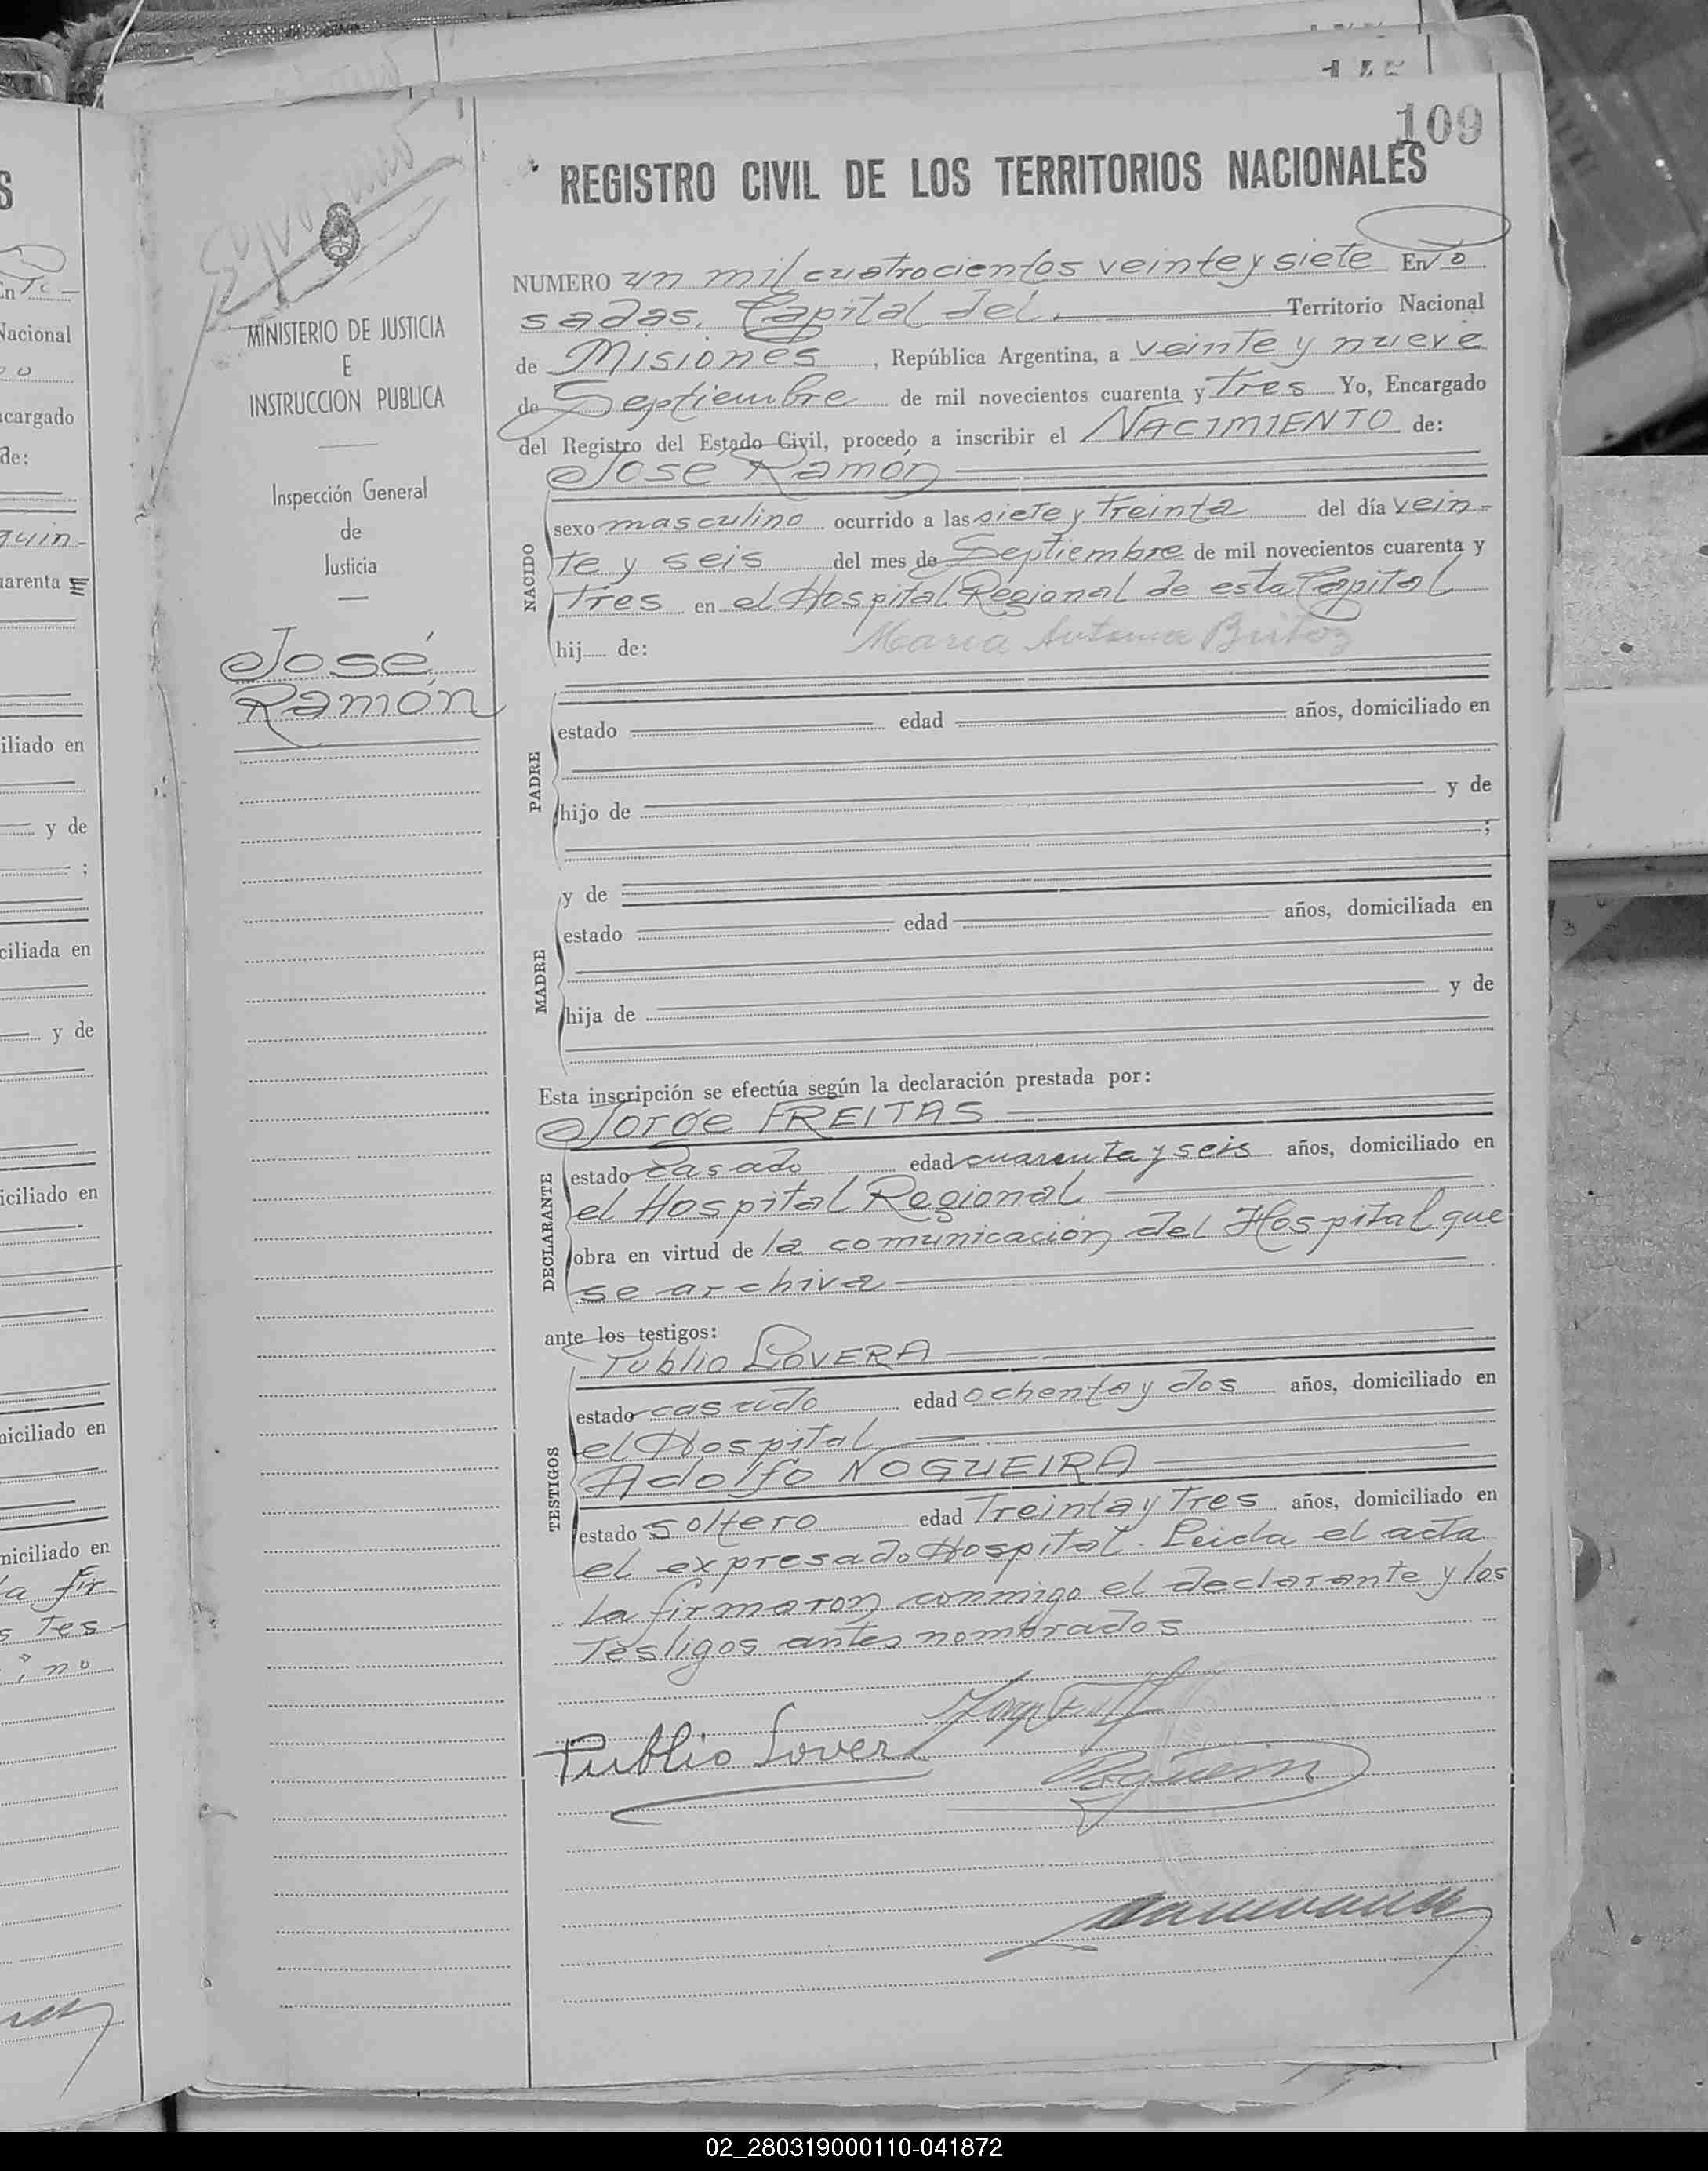 109
REGISTRO CIVIL DE LOS TERRITORIOS NACIONALES
NUMERO un mil cuatrocientos veinte y siete En Po
sadas, Capital del Territorio Nacional
de Misiones, República Argentina, a veinte y nueve
de Septiembre de mil novecientos cuarenta y Tres Yo, Encargado
del Registro del Estado Civil, procedo a inscribir el NACIMIENTO de:
Jose Ramón
NACIDO
sexo masculino ocurrido a las siete y Treinta del día vein-
te y seis del mes de Septiembre de mil novecientos cuarenta y
Tres en el Hospital Regional de esta Capital
hij de: Maria Antonia Britoz
PADRE
estado edad años, domiciliado en
hijo de y de
;
MADRE
y de
estado edad años, domiciliada en
hija de y de
Esta inscripción se efectúa según la declaración prestada por:
Jorge FREITAS
DECLARANTE
estado casado edad cuarenta y seis años, domiciliado en
el Hospital Regional
obra en virtud de la comunicación del Hospital que
se archiva
ante los testigos:
Publio LOVERA
TESTIGOS
estado casado edad ochenta y dos años, domiciliado en
el Hospital
Adolfo NOGUEIRA
estado soltero edad Treinta y Tres años, domiciliado en
el expresado Hospital. Leida el acta
la firmaron conmigo el declarante y los
Testigos antes nombrados
Publio Lovera
MINISTERIO DE JUSTICIA
E
INSTRUCCION PUBLICA
Inspección General
de
Justicia
José
Ramón
En
Nacional
ncargado
de:
quin-
uarenta
iliado en
y de
;
ciliada en
y de
iciliado en
niciliado en
niciliado en
la fir-
s Tes-
02_280319000110-041872